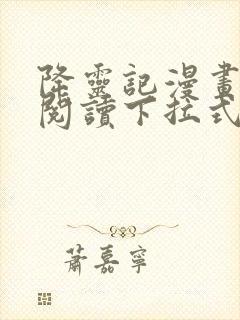 降靈記漫畫
閱讀下拉式
蕭嘉寧